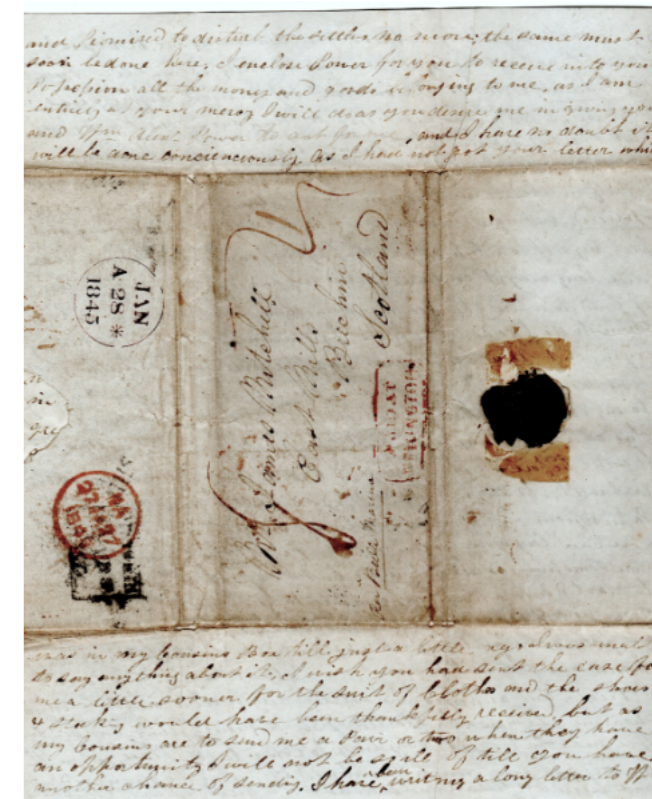 and promised to disturb the settlers no more; the same must
soon be done here. I enclose Power for you to receive into your
possession all the money and goods belonging to me, as I am
entirely at your mercy I will do as you desire me in giving you
and Power to act for me, and I have no doubt it
will be done conscienciously as I had not got your letter whi
JAN
A 28 *
1845
Mr James Mitchell
East Mills
Brechin
Scotland
PAID AT
WELLINGTON
27
was in my Cousins Box till just a little
to say anything about it, I wish you had sent the case fo
me a little sooner for the suit of Cloths and the shoes
& stockings would have been thankfully received but as
my Cousins are to send me a Pair or two when they have
an opportunity I will not be so ill off till you have
another chance of sending. I have been writing a long letter to